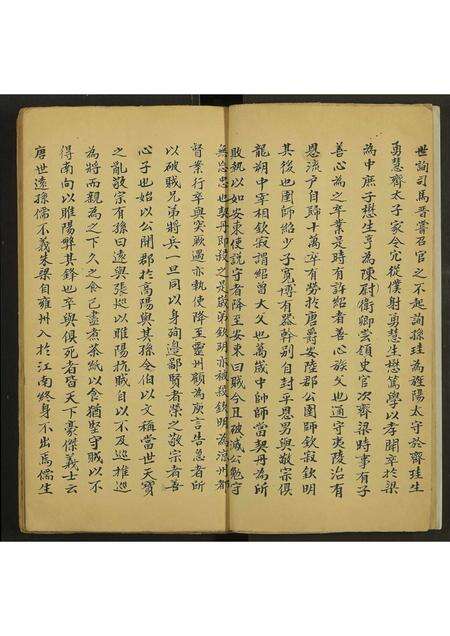 世詢司馬晉嘗召官之不起詢孫珪為旌陽太守於齊珪生
勇慧齊太子家令冗從僕射勇慧生懋篤學以孝聞卒於梁
為中庶子懋生亨為陳尉衛卿雲領史官次齊梁時事有子
善心為之卒業是時有許紹者善心族父也通守夷陵治有
恩流戶自歸十萬卒有勞於唐爵安陸郡公圉師欽寂欽明
其後也圉師紹少子寬博有器幹別自封平恩男與敬宗俱
龍朔中宰相欽寂謂紹曾大父也萬歲中帥師當契丹為所
敗執以如安東使說守者降至安東曰賊今且破滅公勉守
無忘忠也契丹即殺之是歲弟欽明亦殺欽明為涼州都
督案行卒與突厥遇亦執使降至靈州顧為庾言告急者所
以破賊兄弟將兵一旦同以身殉邊鄙賢者榮之敬宗者善
心子也始以公開郡於高陽與其孫令伯以文稱當世天寶
之亂敬宗有孫曰遠與張巡以睢陽抗賊自以不及巡推巡
為將而親為之下久之食已盡煮茶紙以食猶堅守賊以不
得南向以睢陽弊其鋒也卒與俱死者皆天下豪傑義士云
唐世遠孫儒不義朱梁自雍州入於江南終身不出焉儒生